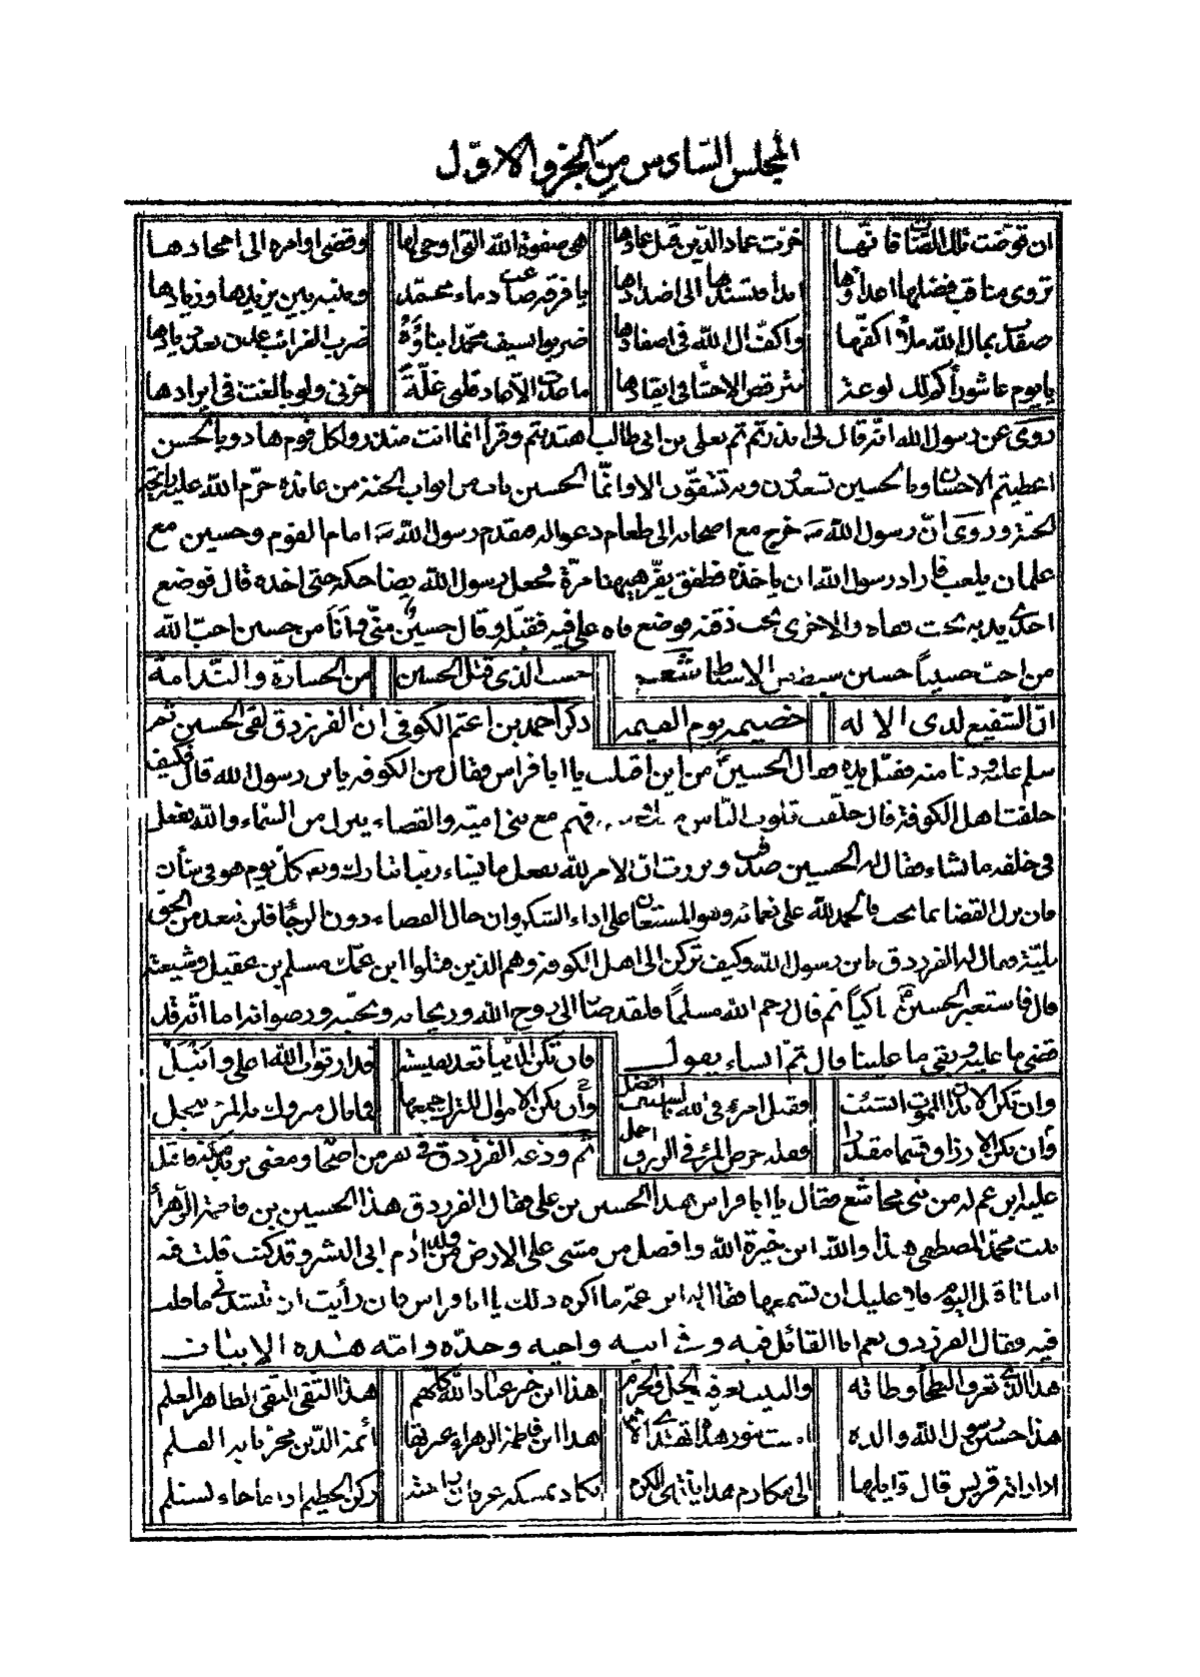 المجلس السادس من الجزو الاول
ان قوضت تلك القباب فانها خرّت عماد الدين قبل عمادها هي صفوة الله التي اوحى لها وقضى اوامره الى امجادها
تروى مناقب فضلها اعداؤها ابدا فتسندها الى اضدادها يا فرقة ضاعت دماء محمّد وبنيه بين يزيدها وزيادها
صفدت بمال الله ملأ اكفّها واكفّ ال الله في اصفادها ضربوا بسيف محمّد ابناؤه ضرب الغرائب عدن بعد ذيادها
يا يوم عاشورا كم لك لوعة تترقص الاحشا في ايقادها ما عدت الا عاد قلبي غلّة حزني ولو بالغت في ايرادها
روى عن رسول الله انّه قال لى انذرتم ثم بعلى بن ابى طالب اهتديتم وقرأ انما انت منذر ولكل قوم هاد وبالحسن
اعطيتم الاحسان وبالحسين تسعدون وبه تشقون الا وانّما الحسين باب من ابواب الجنة من عانده حرّم الله عليه رايحة
الجنّة وروى انّ رسول الله خرج مع اصحابه الى طعام دعوا له فتقدم رسول الله امام القوم وحسين مع
غلمان يلعب فاراد رسول الله ان ياخذه فطفق يفرّ هيهنا مرّة فجعل رسول الله يضاحكه حتى اخذه قال فوضع
احدى يديه تحت قفاه والاخرى تحت ذقنه فوضع فاه على فيه فقبّله وقال حسين منّى وانا من حسين احبّ الله
من احب حسيناً حسين سبط من الاسباط شعر حسب الذى قتل الحسين من الخسارة والنّدامة
انّ الشفيع لدى الاله خصيمه يوم القيمه ذكر احمد بن اعثم الكوفى ان الفرزدق لقى الحسين ثم
سلم عليه ودنا منه فقبّل يده فقال الحسين من اين اقبلت يا ابا فراس فقال من الكوفه يابن رسول الله قال فكيف
خلفت اهل الكوفة قال خلّفت قلوب النّاس معك وسيوفهم مع بنى اميّة والقضاء ينزل من السّماء والله يفعل
فى خلقه ما يشاء فقال له الحسين صدقت وبررت ان الامر لله يفعل ما يشاء ربّنا تبارك وتعالى كلّ يوم هو فى شأن
فان نزل القضا بما نحب فالحمد لله على نعمائه وهو المستعان على اداء الشكر وان حال القضاء دون الرجا فلن يبعد من الحق
نيّته فقال له الفرزدق يابن رسول الله وكيف تركن الى اهل الكوفه وهم الذين قتلوا ابن عمك مسلم بن عقيل وشيعته
قال فاستعبر الحسين باكياً ثم قال رحم الله مسلماً فلقد صار الى روح الله وريحانه وتحيّته ورضوانه اما انّه قد
قضى ما عليه وبقى ما علينا قال ثم انشاء يقول فان تكن الدنيا تعد نفيسة فدار ثواب الله اعلى وانبل
وان تكن الابدان للموت انشئت فقتل امرء فى الله بالسيف افضل وان تكن الاموال للترك جمعها فما بال متروك به المرء يبخل
وان تكن الارزاق قسما مقدرا فقلة حرص المرء فى الرزق اجمل ثم ودّعه الفرزدق فى نفر من اصحابه ومضى يريد مكة فاقبل
عليه ابن عم له من بنى مجاشع فقال يا ابا فراس هذا الحسين بن على فقال الفرزدق هذا الحسين بن فاطمة الزهرا
بنت محمّد المصطفى هذا والله ابن خيرة الله وافضل من مشى على الارض من ولد ادم ابى البشر وقد كنت قلت فيه
ابياتا قبل اليوم فلا عليك ان تسمعها فقال له ابن عمّه ما اكره ذلك يا ابا فراس فان رأيت ان تنشدنى ما قلت
فيه فقال الفرزدق نعم انا القائل فيه وفى ابيه واخيه وجدّه وامّه هذه الابيات
هذا الذى تعرف البطحا وطاته والبيت يعرفه والحلّ والحرم هذا ابن خير عباد الله كلّهم هذا التقى النقى الطاهر العلم
هذا حسين رسول الله والده امست بنور هداه تهتدى الامم هذا ابن فاطمة الزهراء عترتها ائمة الدّين مجريا به القلم
اذا راته قريش قال قائلها الى مكارم هذا ينتهى الكرم يكاد يمسكه عرفان راحته ركن الحطيم اذا ما جاء يستلم